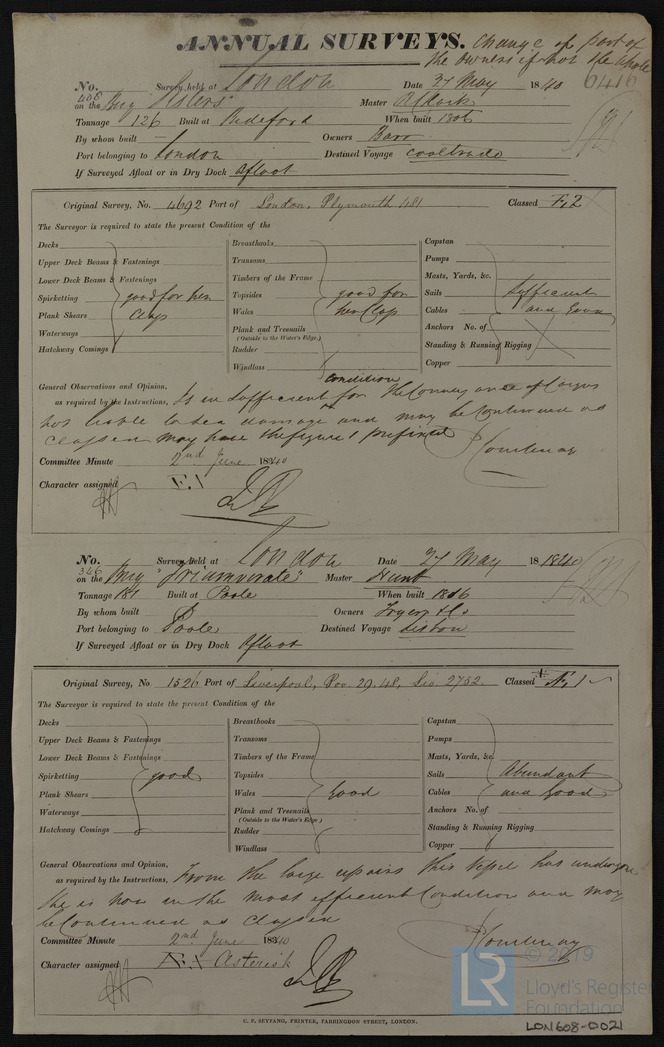 ANNUAL SURVEYS. Change of part of
the owners if not the whole
6416
No. 408 Survey held at London Date 27 May 1840
on the Brig "Sisters" Master
Tonnage 126 Built at Bideford When built 1806
By whom built — Owners Barr
Port belonging to London Destined Voyage Coaltrade
If Surveyed Afloat or in Dry Dock Afloat
Original Survey, No. 4692 Port of London, Plymouth 481 Classed
The Surveyor is required to state the present Condition of the
Decks Breasthooks Capstan
Upper Deck Beams & Fastenings Transoms Pumps
Lower Deck Beams & Fastenings Timbers of the Frame Masts, Yards, &c.
Spirketting good for her Topsides good for Sails Sufficient
Plank Shears Class Wales her Class Cables and Good
Waterways Plank and Treenails Anchors No. of
(Outside to the Water's Edge.)
Hatchway Comings Rudder Standing & Running Rigging
Windlass Copper
condition
General Observations and Opinion, Is in sufficient for the Conveyance of Cargos
as required by the Instructions, not liable to sea damage and may be Continued as
Classed may have the figure 1 prefixed
Courtenay
Committee Minute 2nd June 1840
Character assigned Æ1
No. 346 Survey held at London Date 27 May 1840
on the Brig "Triumverate" Master Hunt
Tonnage 181 Built at Poole When built 1816
By whom built Owners Fryer & Co
Port belonging to Poole Destined Voyage Lisbon
If Surveyed Afloat or in Dry Dock Afloat
Original Survey, No 1526 Port of Liverpool, Poo. 29.48, Lio. 2752. Classed Æ1
The Surveyor is required to state the present Condition of the
Decks Breasthooks Capstan
Upper Deck Beams & Fastenings Transoms Pumps
Lower Deck Beams & Fastenings Timbers of the Frame Masts, Yards, &c.
Spirketting good Topsides Sails Abundant
Plank Shears Wales Good Cables and Good
Waterways Plank and Treenails Anchors No. of
(Outside to the Water's Edge)
Hatchway Comings Rudder Standing & Running Rigging
Windlass Copper
General Observations and Opinion, From the large repairs this Vessel has undergone
as required by the Instructions, She is now in the most efficient Condition and may
be Continued as Classed
Courtenay
Committee Minute 2nd June 1840
Character assigned Æ1 Asterisk
C. F. SEYFANG, PRINTER, FARRINGDON STREET, LONDON.
LR © 2019
Lloyd's Register
Foundation
LON608-0021